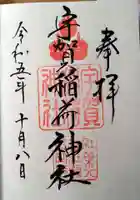 奉拝
宇賀稲荷神社
令和五年十月八日